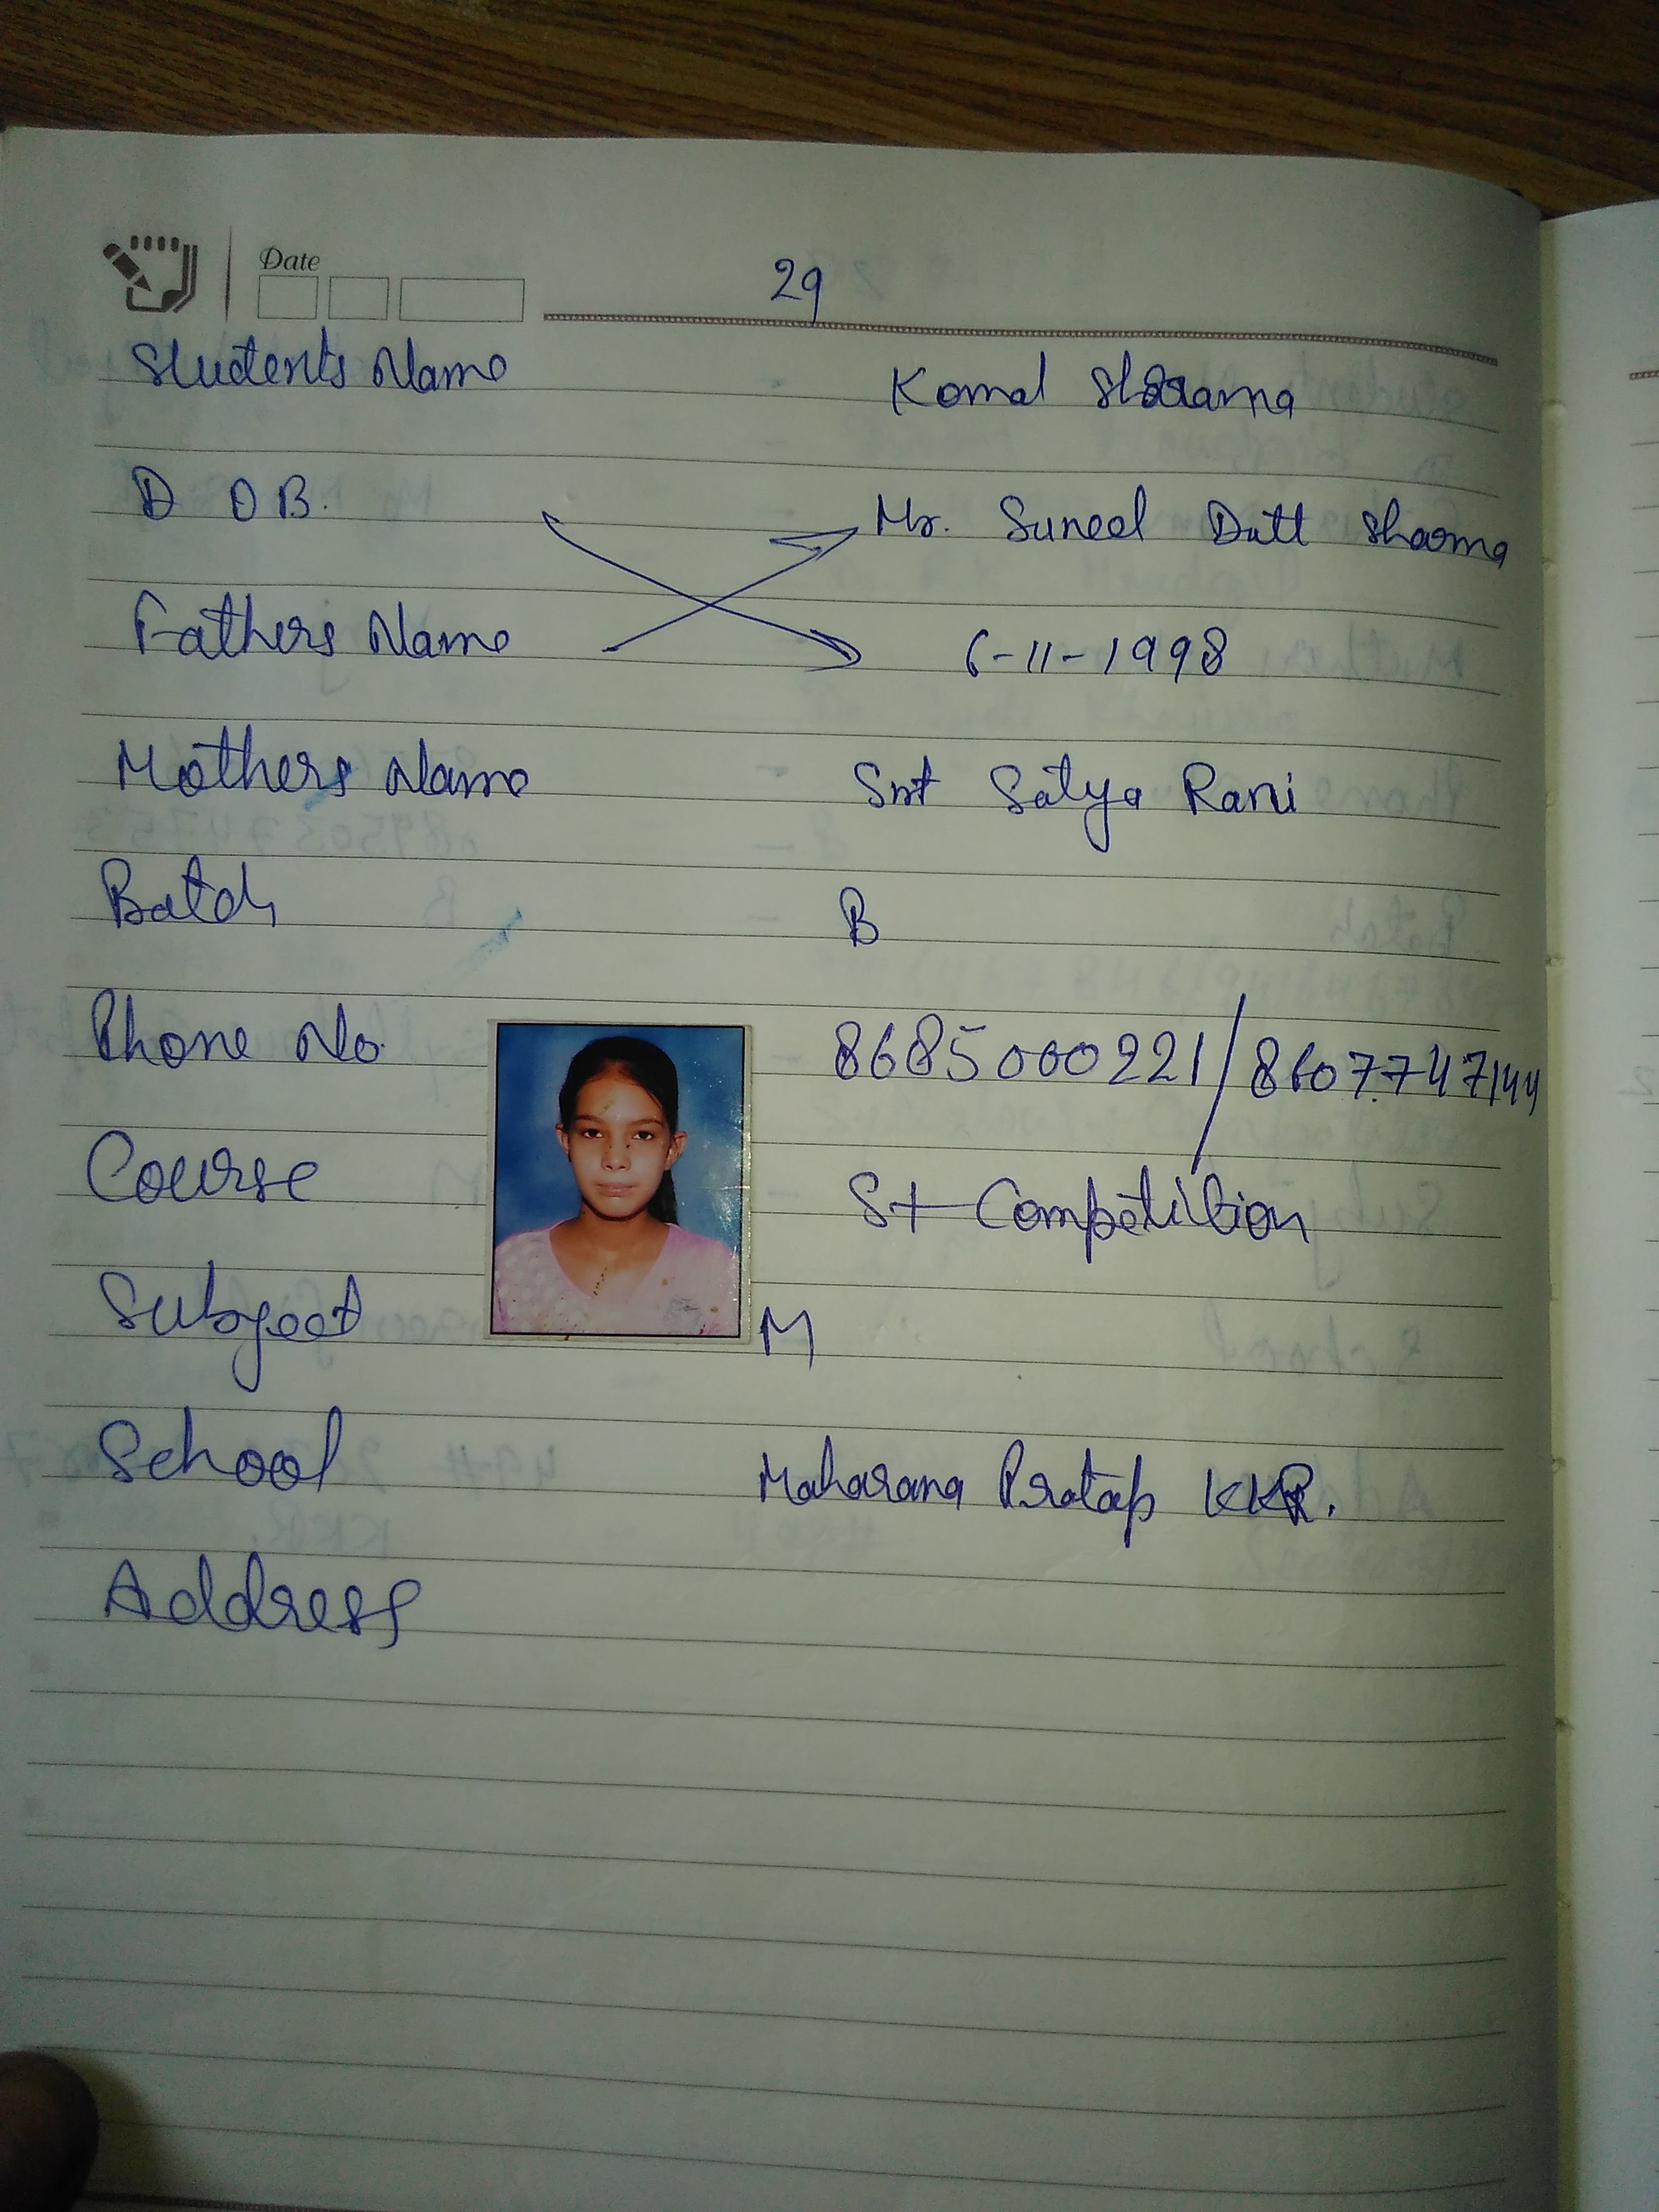 Date
29
Students Name Komal Sharma
D O B. Mr. Suneel Dutt Sharma
Fathers Name 6-11-1998
Mothers Name Smt Satya Rani
Batch B
Phone No. 8685000221/8607747144
Course S+ Competition
Subject M
School Maharana Pratap KKR.
Address